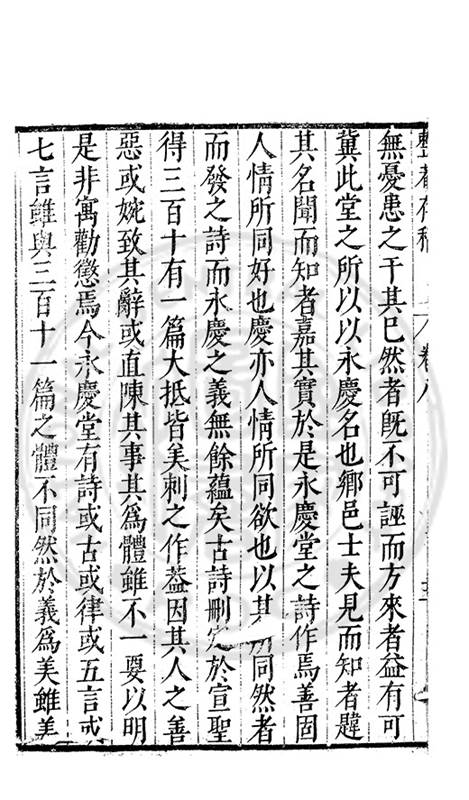 整菴存稿 卷八
無憂患之干其已然者既不可誣而方來者益有可
冀此堂之所以以永慶名也鄉邑士夫見而知者韙
其名聞而知者嘉其實於是永慶堂之詩作焉善固
人情所同好也慶亦人情所同欲也以其所同然者
而發之詩而永慶之義無餘蘊矣古詩刪定於宣聖
得三百十有一篇大抵皆美刺之作葢因其人之善
惡或婉致其辭或直陳其事其爲體雖不一要以明
是非寓勸懲焉今永慶堂有詩或古或律或五言或
七言雖與三百十一篇之體不同然於義爲美雖美